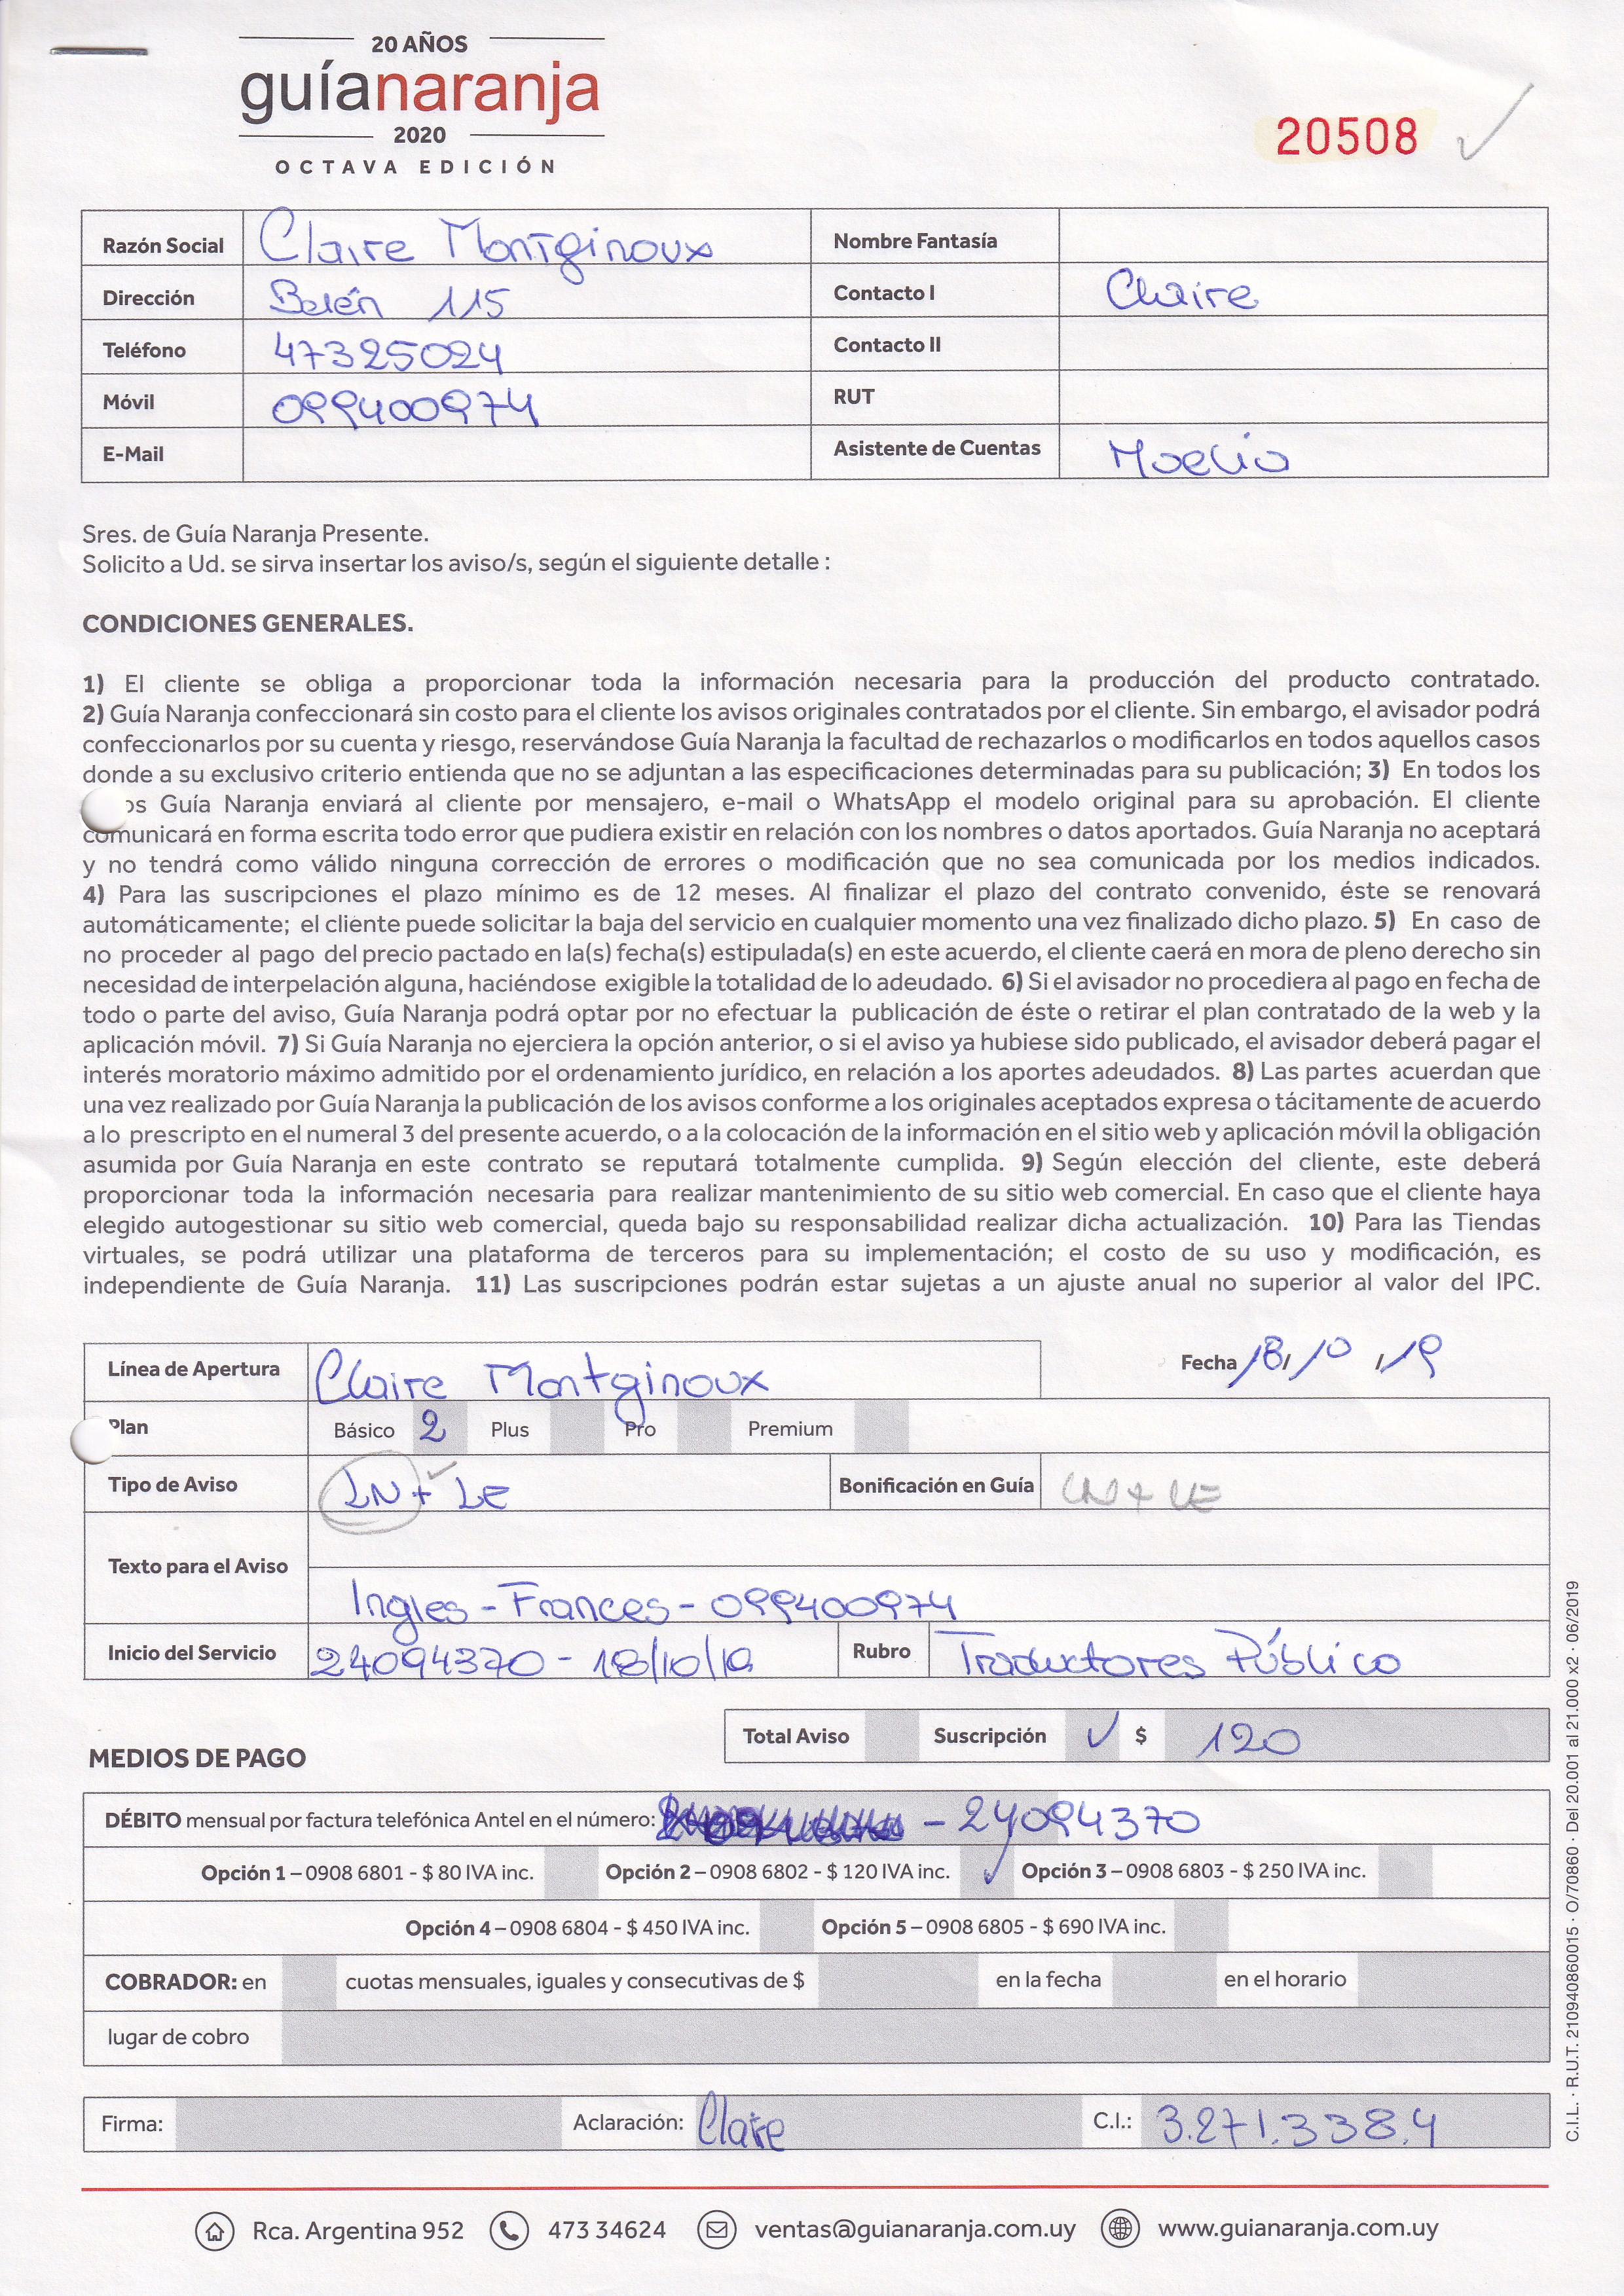 20 AÑOS
guíanaranja
2020
OCTAVA EDICIÓN
20508
Razón Social Claire Montginoux Nombre Fantasía
Dirección Belén 115 Contacto I Claire
Teléfono 47325024 Contacto II
Móvil 099400974 RUT
E-Mail Asistente de Cuentas
Sres. de Guía Naranja Presente.
Solicito a Ud. se sirva insertar los aviso/s, según el siguiente detalle :
CONDICIONES GENERALES.
1) El cliente se obliga a proporcionar toda la información necesaria para la producción del producto contratado.
2) Guía Naranja confeccionará sin costo para el cliente los avisos originales contratados por el cliente. Sin embargo, el avisador podrá
confeccionarlos por su cuenta y riesgo, reservándose Guía Naranja la facultad de rechazarlos o modificarlos en todos aquellos casos
donde a su exclusivo criterio entienda que no se adjuntan a las especificaciones determinadas para su publicación; 3) En todos los
os Guía Naranja enviará al cliente por mensajero, e-mail o WhatsApp el modelo original para su aprobación. El cliente
comunicará en forma escrita todo error que pudiera existir en relación con los nombres o datos aportados. Guía Naranja no aceptará
y no tendrá como válido ninguna corrección de errores o modificación que no sea comunicada por los medios indicados.
4) Para las suscripciones el plazo mínimo es de 12 meses. Al finalizar el plazo del contrato convenido, éste se renovará
automáticamente; el cliente puede solicitar la baja del servicio en cualquier momento una vez finalizado dicho plazo. 5) En caso de
no proceder al pago del precio pactado en la(s) fecha(s) estipulada(s) en este acuerdo, el cliente caerá en mora de pleno derecho sin
necesidad de interpelación alguna, haciéndose exigible la totalidad de lo adeudado. 6) Si el avisador no procediera al pago en fecha de
todo o parte del aviso, Guía Naranja podrá optar por no efectuar la publicación de éste o retirar el plan contratado de la web y la
aplicación móvil. 7) Si Guía Naranja no ejerciera la opción anterior, o si el aviso ya hubiese sido publicado, el avisador deberá pagar el
interés moratorio máximo admitido por el ordenamiento jurídico, en relación a los aportes adeudados. 8) Las partes acuerdan que
una vez realizado por Guía Naranja la publicación de los avisos conforme a los originales aceptados expresa o tácitamente de acuerdo
a lo prescripto en el numeral 3 del presente acuerdo, o a la colocación de la información en el sitio web y aplicación móvil la obligación
asumida por Guía Naranja en este contrato se reputará totalmente cumplida. 9) Según elección del cliente, este deberá
proporcionar toda la información necesaria para realizar mantenimiento de su sitio web comercial. En caso que el cliente haya
elegido autogestionar su sitio web comercial, queda bajo su responsabilidad realizar dicha actualización. 10) Para las Tiendas
virtuales, se podrá utilizar una plataforma de terceros para su implementación; el costo de su uso y modificación, es
independiente de Guía Naranja. 11) Las suscripciones podrán estar sujetas a un ajuste anual no superior al valor del IPC.
Línea de Apertura Claire Montginoux Fecha 18/10/19
Plan Básico 2 Plus Pro Premium
Tipo de Aviso LN + LE Bonificación en Guía LN + LE
Texto para el Aviso
Ingles - Frances - 099400974
Inicio del Servicio 24094370 - 18/10/19 Rubro Traductores Público
Total Aviso Suscripción ✓ $ 120
MEDIOS DE PAGO
DÉBITO mensual por factura telefónica Antel en el número: - 24094370
Opción 1 – 0908 6801 - $ 80 IVA inc. Opción 2 – 0908 6802 - $ 120 IVA inc. ✓ Opción 3 – 0908 6803 - $ 250 IVA inc.
Opción 4 – 0908 6804 - $ 450 IVA inc. Opción 5 – 0908 6805 - $ 690 IVA inc.
COBRADOR: en cuotas mensuales, iguales y consecutivas de $ en la fecha en el horario
lugar de cobro
Firma: Aclaración: Claire C.I.: 3.271.338.4
Rca. Argentina 952 473 34624 ventas@guianaranja.com.uy www.guianaranja.com.uy
C.I.L. · R.U.T. 210940860015 · O/70860 · Del 20.001 al 21.000 x2 · 06/2019